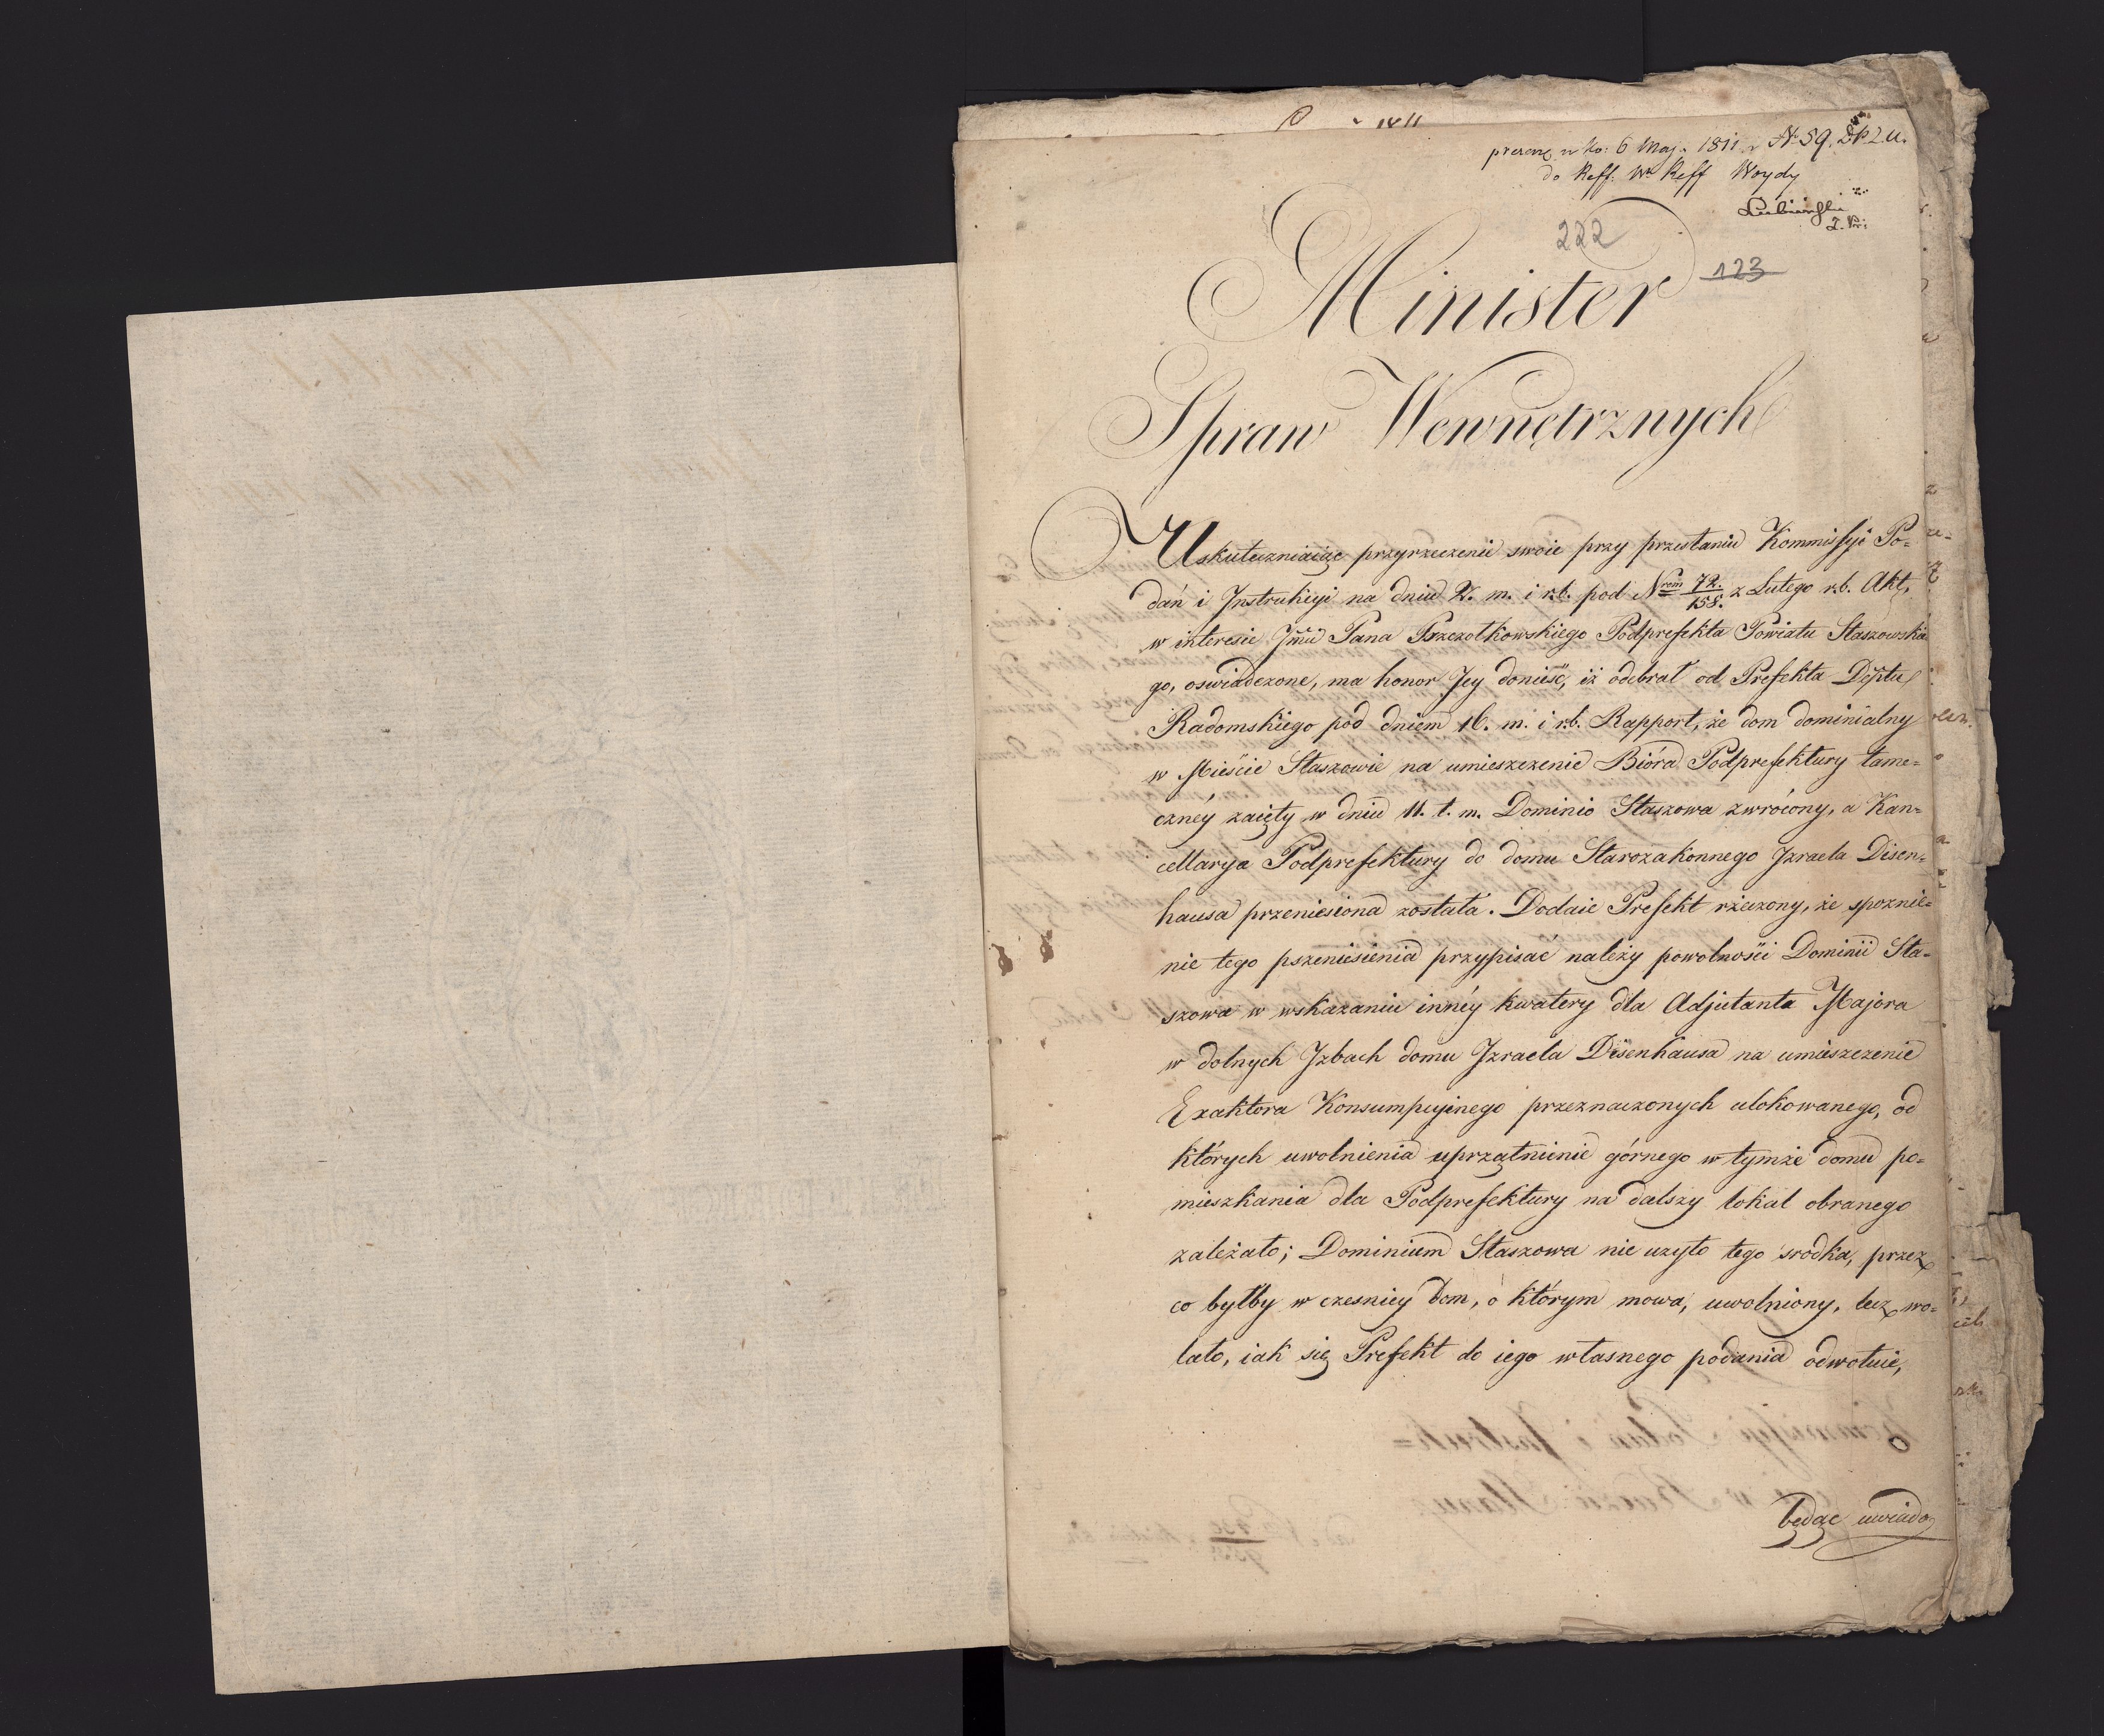 6 Maj. 1811 r. N 59. D.P.Z.U.
do Reff. Wo Reff Woydy
Lubieński
222
123
Minister
Spraw Wewnętrznych
Uskuteczniaiąc przyrzeczenie swoie przy przesłaniu Kommissyi Po=
dań i Instrukcyi na dniu 2. m. i r.b. pod Nrem 72./158. z Lutego r.b. Akt,
w interesie Jmć Pana Pszczołkowskiego Podprefekta Powiatu Staszowskie
go, oswiadczone, ma honor Jey donieść, iż odebrał od Prefekta Dęptu
Radomskiego pod dniem 16. m. i r.b. Rapport, że dom dominialny
w Mieście Staszowie na umieszczenie Bióra Podprefektury tame=
cznéy zaięty w dniu 11. t. m. Dominio Staszowa zwrócony, a Kan=
cellarya Podprefektury do domu Starozakonnego Jzraela Disen=
hausa przeniesiona została. Dodaie Prefekt rzeczony, że spoznie=
nie tego pszeniesienia przypisać należy powolności Dominii Sta=
szowa w wskazaniu innéy kwatery dla Adjutanta Majora
w dolnych Jzbach domu Jzraela Disenhausa na umieszczenie
Exaktora Konsumpcyinego przeznaczonych ulokowanego, od
których uwolnienia uprzątnienie górnego w tymże domu po=
mieszkania dla Podprefektury na dalszy lokal obranego
zależało; Dominium Staszowa nie uzyło tego srodka, przez
co byłby w czesniey dom, o którym mowa, uwolniony, lecz wo=
lało, iak się Prefekt do iego własnego podania odwołuie,
będąc uwiado